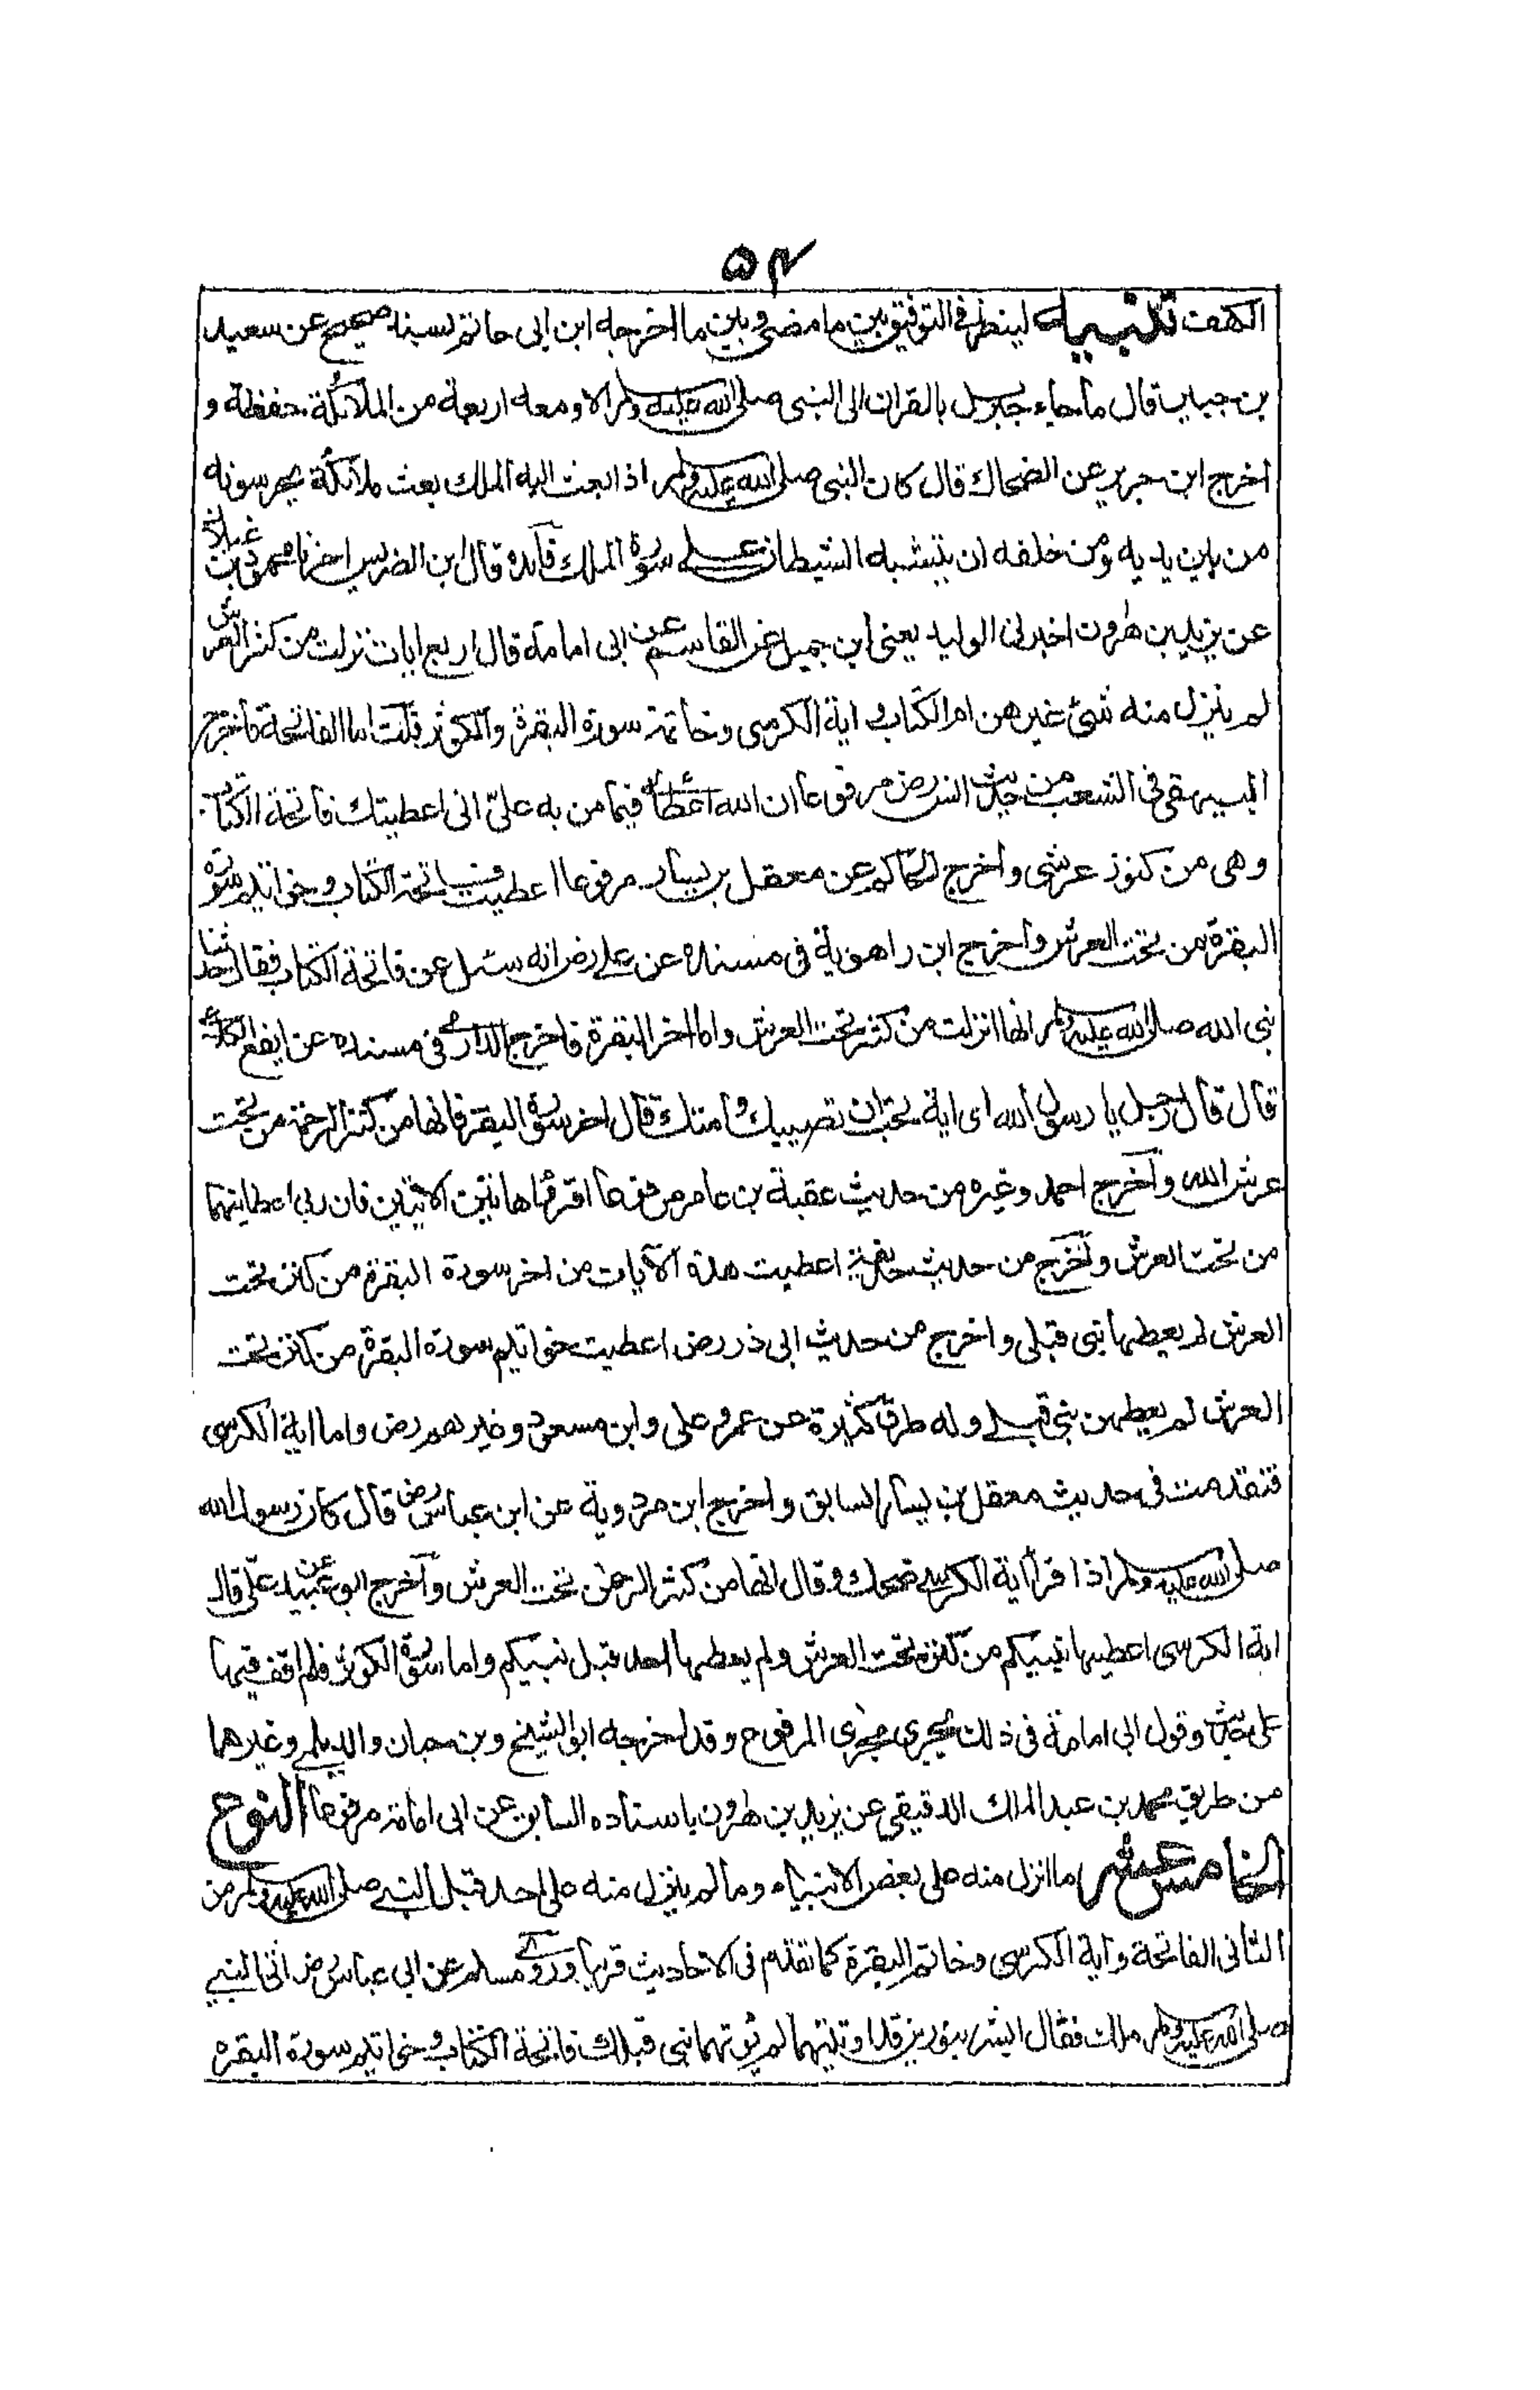 ۵۴
الكهف تنبيه لينظر في التوفيق بين ما مضى وبين ما اخرجه ابن ابى حاتم بسند صحيح عن سعيد
بن جبير قال ما جاء جبريل بالقران الى النبى صلى الله عليه وسلم الا ومعه اربعة من الملائكة حفظة و
اخرج ابن جرير عن الضحاك قال كان النبى صلى الله عليه وسلم اذا بعث اليه الملك بعث ملائكة يحرسونه
من بين يديه ومن خلفه ان يتشبه الشيطان على سورة الملك فائده قال ابن الضريس اخبرنا محمود بن غيلان
عن يزيد بن هارون اخبرنى الوليد يعنى ابن جميل عن القاسم عن ابى امامة قال اربع ايات نزلت من كنز العرش
لم ينزل منه شئ غيرهن ام الكتاب و اية الكرسى وخاتمة سورة البقرة والكوثر قلت اما الفاتحة فاخرج
البيهقى فى الشعب من حديث انس رض مرفوعا ان الله اعطانى فيما من به على انى اعطيتك فاتحة الكتاب
وهى من كنوز عرشى واخرج الحاكم عن معقل بن يسار مرفوعا اعطيت فاتحة الكتاب وخواتيم سورة
البقرة من تحت العرش واخرج ابن راهوية فى مسنده عن على رض انه سئل عن فاتحة الكتاب فقال حدثنا
نبى الله صلى الله عليه وسلم انها انزلت من كنز تحت العرش واما اخر البقرة فاخرج الدارمى فى مسنده عن ايفع الكلاعى
قال قال رجل يا رسول الله اى اية تحب ان تصيبك وامتك قال اخر سورة البقرة فانها من كنز الرحمة من تحت
عرش الله واخرج احمد وغيره من حديث عقبة بن عامر مرفوعا اقرؤا هاتين الايتين فان ربى اعطانيهما
من تحت العرش واخرج من حديث حذيفة اعطيت هذه الآيات من اخر سورة البقرة من كنز تحت
العرش لم يعطها نبى قبلى واخرج من حديث ابى ذر رض اعطيت خواتيم سورة البقرة من كنز تحت
العرش لم يعطهن نبى قبلى وله طرق كثيرة عن عمر وعلى وابن مسعود وغيرهم رض واما اية الكرسى
فتقدمت فى حديث معقل بن يسار السابق واخرج ابن مردوية عن ابن عباس رض قال كان رسول الله
صلى الله عليه وسلم اذا قرأ اية الكرسى ضحك وقال انها من كنز الرحمن تحت العرش واخرج ابو عبيد عن على قال
اية الكرسى اعطيها نبيكم من كنز تحت العرش ولم يعطها احد قبل نبيكم واما سورة الكوثر فلم اقف فيها
على حديث وقول ابى امامة فى ذلك يجرى مجرى المرفوع وقد اخرجه ابو الشيخ وبن حبان والديلمى وغيرهما
من طريق محمد بن عبد الملك الدقيقى عن يزيد بن هارون باسناده السابق عن ابى امامة مرفوعا النوع
الخامس عشر ما انزل منه على بعض الانبياء وما لم ينزل منه على احد قبل النبى صلى الله عليه وسلم من
الثانى الفاتحة واية الكرسى وخاتمة البقرة كما تقدم فى الاحاديث قريبا وروى مسلم عن ابى عباس رض اتى النبى
صلى الله عليه وسلم ملك فقال ابشر بنورين قد اوتيتهما لم يؤتهما نبى قبلك فاتحة الكتاب وخواتيم سورة البقره